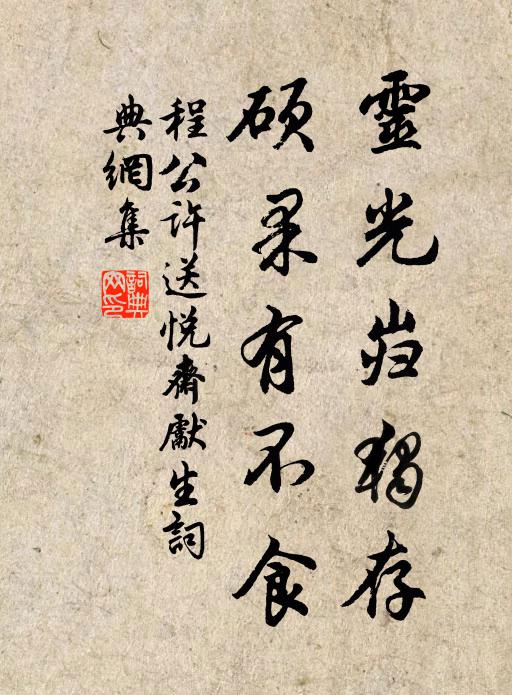 靈光岿獨存
硕果有不食
程公許送悦齋獻生詞
典網集
詞典網印